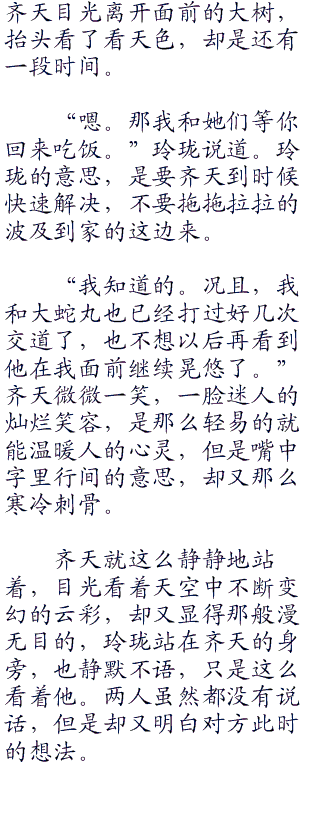 齐天目光离开面前的大树，
抬头看了看天色，却是还有
一段时间。
“嗯。那我和她们等你
回来吃饭。”玲珑说道。玲
珑的意思，是要齐天到时候
快速解决，不要拖拖拉拉的
波及到家的这边来。
“我知道的。况且，我
和大蛇丸也已经打过好几次
交道了，也不想以后再看到
他在我面前继续晃悠了。”
齐天微微一笑，一脸迷人的
灿烂笑容，是那么轻易的就
能温暖人的心灵，但是嘴中
字里行间的意思，却又那么
寒冷刺骨。
齐天就这么静静地站
着，目光看着天空中不断变
幻的云彩，却又显得那般漫
无目的，玲珑站在齐天的身
旁，也静默不语，只是这么
看着他。两人虽然都没有说
话，但是却又明白对方此时
的想法。